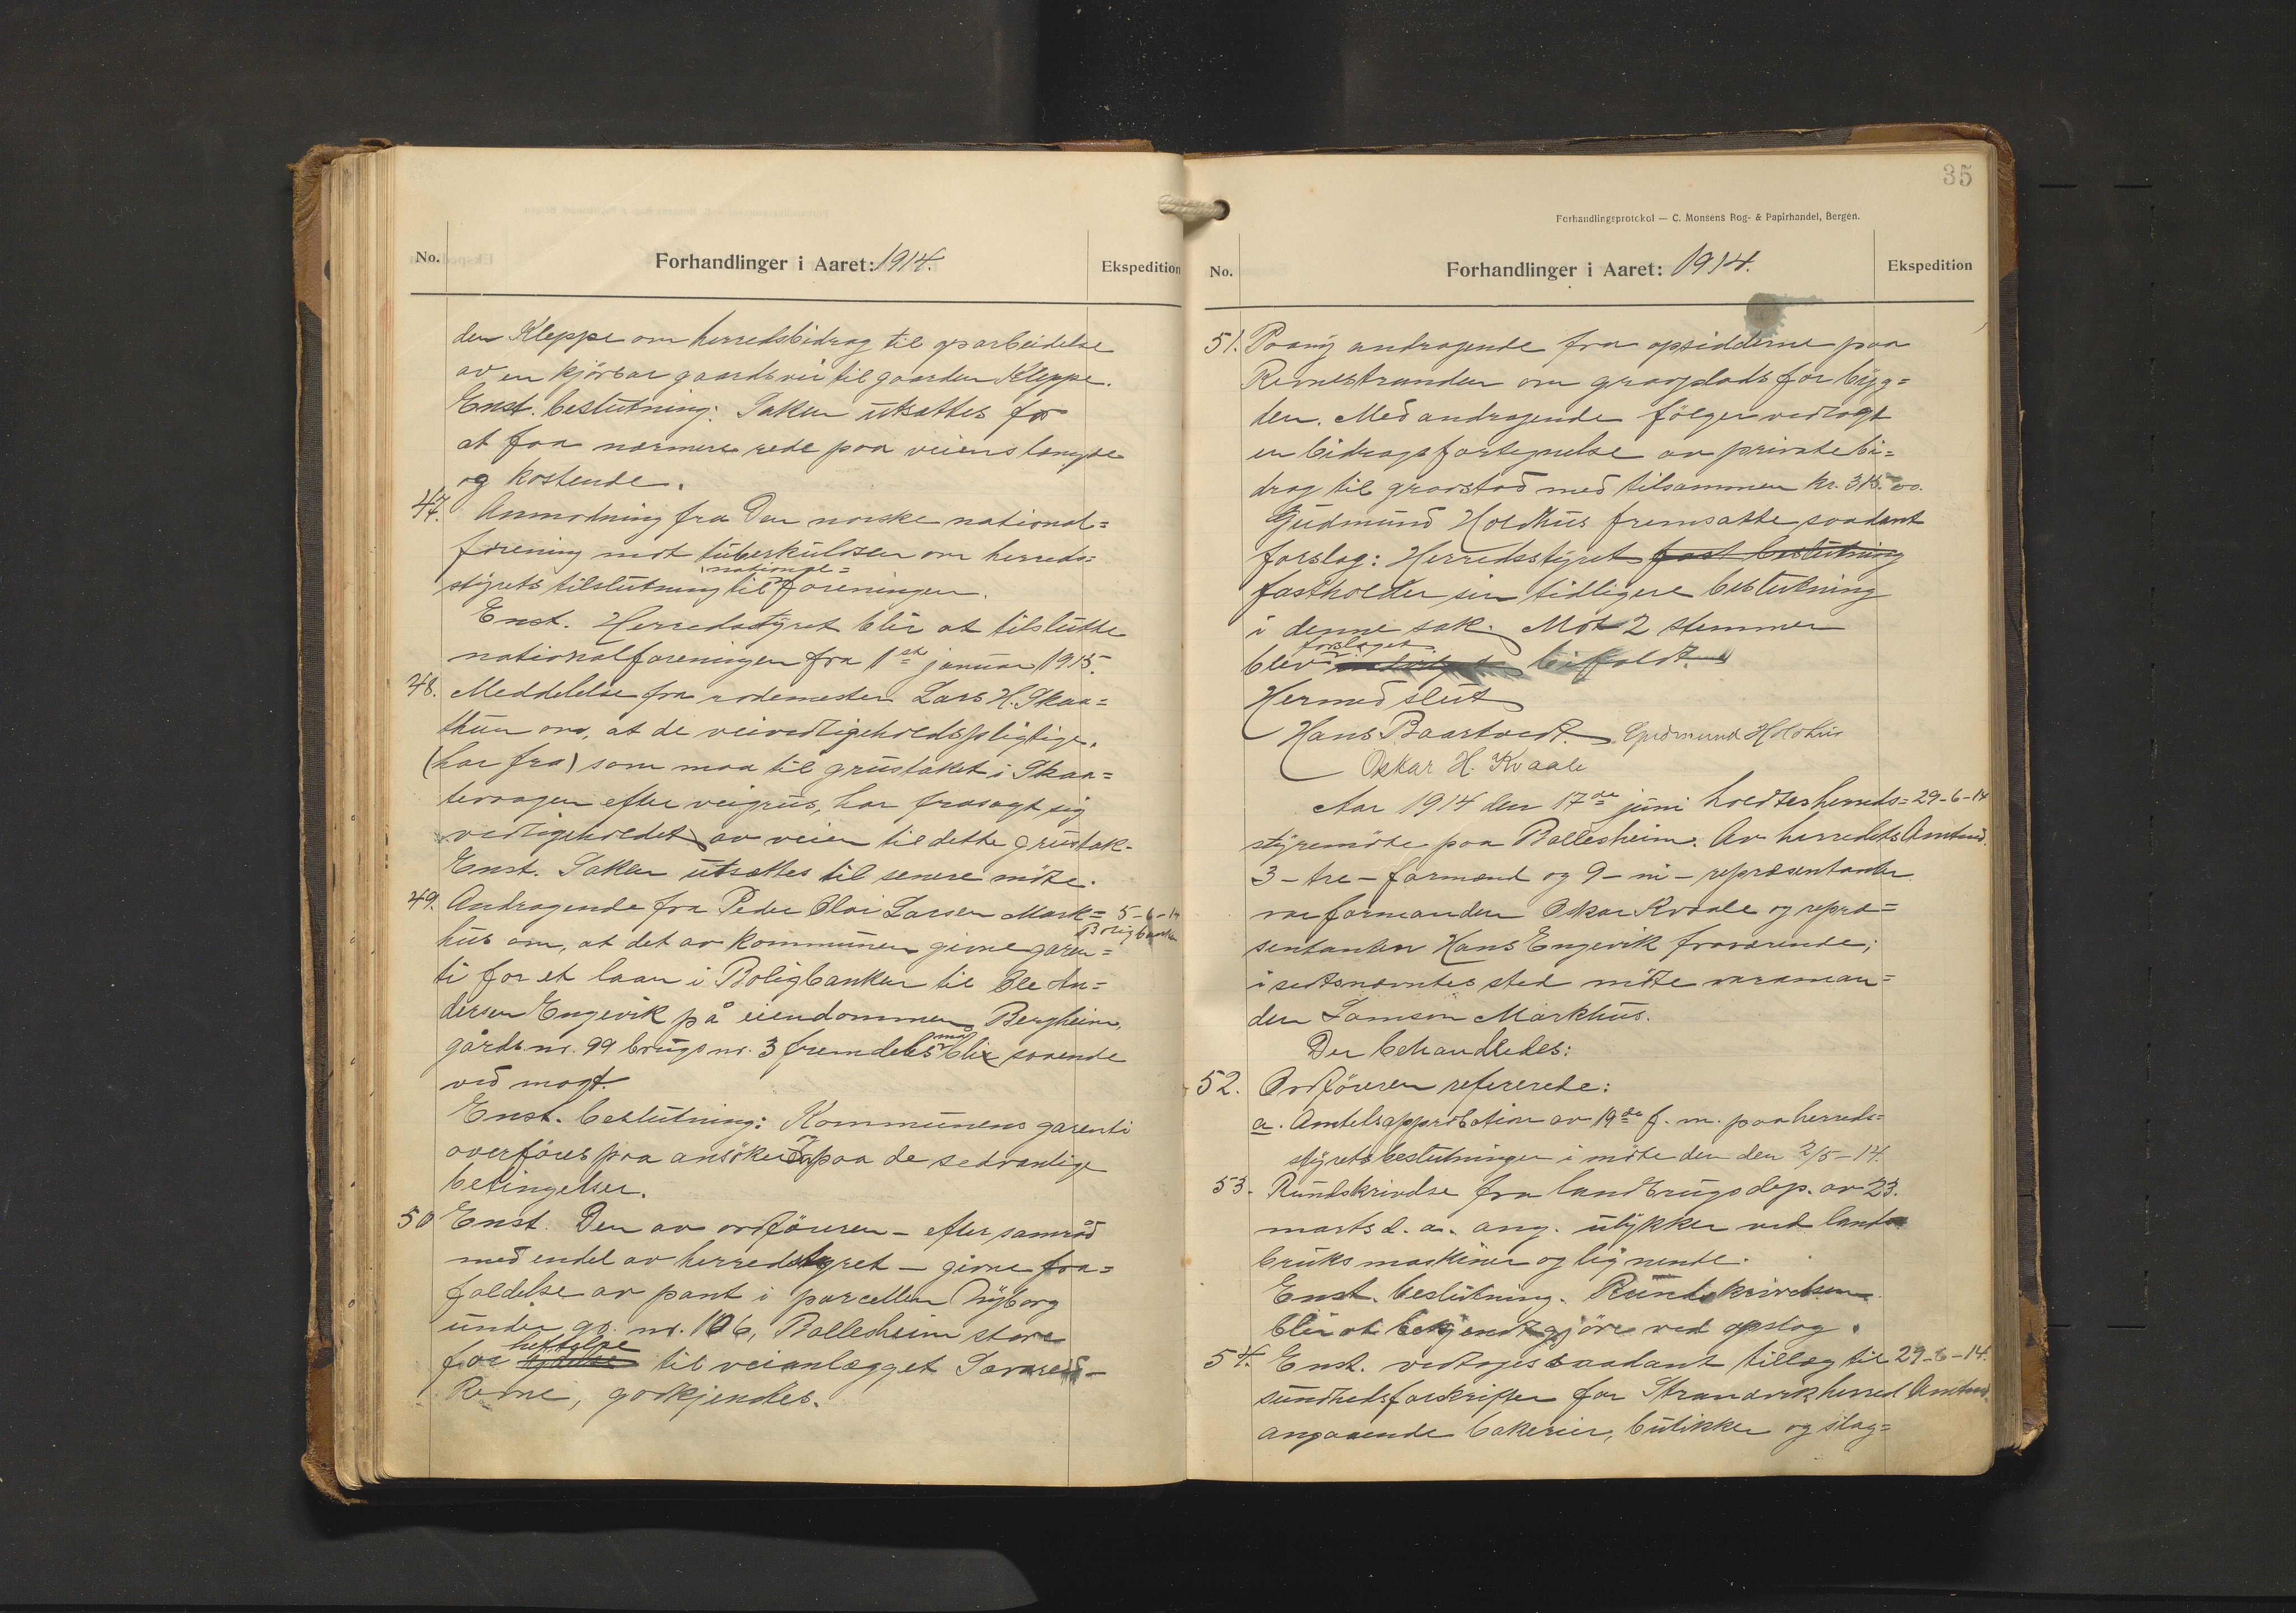 No.
Forhandlinger i Aaret: 1914.
Ekspedition
den Kleppe om herredsbidrag til oparbeidelse
av en kjörbar gaardsvei til gaarden Kleppe.
Enst. beslutning: Saken utsættes for
at faa nærmere rede paa veiens længde
og kostende.
47. Anmodning fra Den norske national=
forening mot tuberkulosen om herreds=
styrets tilslutning til national= foreningen.
Enst. Herredsstyret blir at tilslutte
nationalforeningen fra 1ste januar 1915.
48. Meddelelse fra rodemester Lars H. Skaa=
thun om, at de veivedligeholdspligtige,
(har fra) som maa til grustaket i Skaa=
tevaagen efter veigrus, har frasagt sig
vedligeholdet av veien til dette grustak.
Enst. Saken utsættes til senere möte.
49. Andragende fra Peder Olai Larsen Mark= 5-6-14
hus om, at det av kommunen givne garan= Boligbanken
ti for et laan i Boligbanken til Ole An=
dersen Engevik på eiendommen Bergheim,
gårds nr. 99 brugs nr. 3 fremdeles må bli staaende
ved magt.
Enst. beslutning: Kommunens garanti
overföres paa ansökeren paa de sedvanlige
betingelser.
50 Enst. Den av ordföreren – efter samråd
med endel av herredstyret – givne fra=
faldelse av pant i parcellen Nyborg
under gr. nr. 106, Ballesheim store
for heftelse til veianlægget Sævareid–
Revne, godkjendtes.
35
Forhandlingsprotokol — C. Monsens Bog- & Papirhandel, Bergen.
No.
Forhandlinger i Aaret: 1914.
Ekspedition
51. Paany andragende fra opsidderne paa
Revnestranden om gravplads for byg=
den. Med andragende fölger vedlagt
en bidragsfortegnelse av private bi=
drag til gravstad med tilsammen kr. 315.00.
Gudmund Holdhus fremsatte saadant
forslag: Herredsstyret fast beslutning
fastholder sin tidligere beslutning
i denne sak. Mot 2 stemmer
blev forslaget bifaldt.
Hermed slut
Hans Baartvedt. Gudmund Holdhus
Oskar H. Kvaale
Aar 1914 den 17de juni holdtes herreds= 29-6-14
styremöte paa Ballesheim. Av herredets Amtmd.
3 – tre – formænd og 9 – ni – repræsentanter
var formanden Oskar Kvaale og repræ=
sentanten Hans Engevik fraværende;
i sidstnævntes sted mötte varaman=
den Samson Markhus.
Der behandledes:
52. Ordföreren refererede:
a. Amtets approbation av 19de f. m. paa herreds=
styrets beslutninger i möte den den 2/5–14.
53. Rundskrivelse fra landbrugsdep. av 23.
marts d. a. ang. ulykker ved land
bruks maskiner og lignende.
Enst. beslutning. Rundskrivelsen
blir at bekjendtgjöre ved opslag.
54. Enst. vedtoges saadant tillæg til 29-6-14.
sundhedsforskrifter for Strandvik herred Amtmd.
angaaende bakerier, butikker og slag=